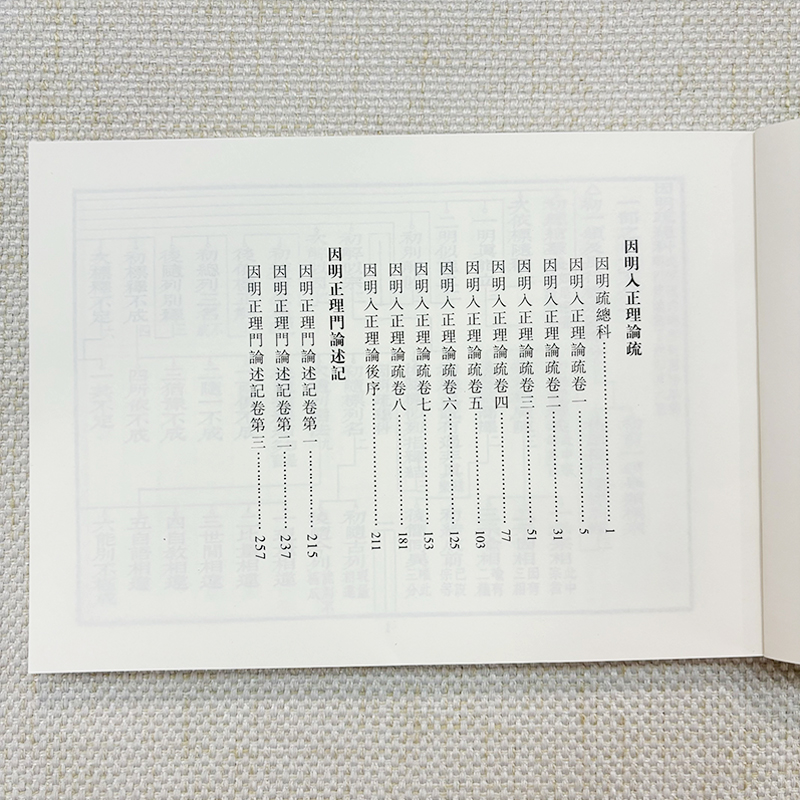 因明入正理論疏
因明疏總科……………………………………1
因明入正理論疏卷一……………………5
因明入正理論疏卷二……………………31
因明入正理論疏卷三……………………51
因明入正理論疏卷四……………………77
因明入正理論疏卷五……………………103
因明入正理論疏卷六……………………125
因明入正理論疏卷七……………………153
因明入正理論疏卷八……………………181
因明入正理論後序………………………211
因明正理門論述記
因明正理門論述記卷第一………………215
因明正理門論述記卷第二………………237
因明正理門論述記卷第三………………257